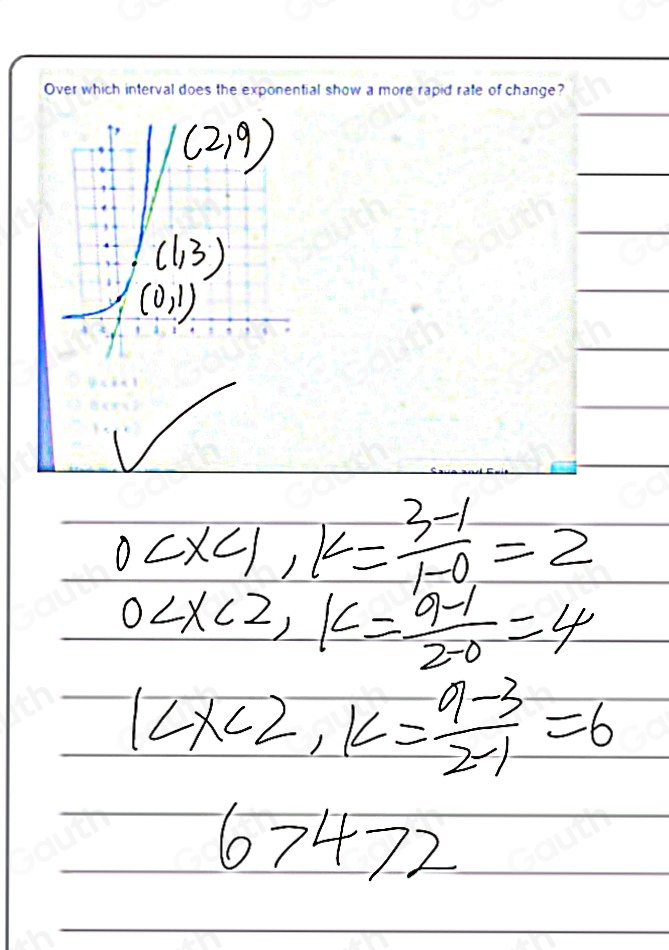 Over which interval does the exponential show a more rapid rate of change?
(2,9)
(1,3)
(0,1)
Save and Exit
0<x<1, k=\frac{3-1}{1-0}=2
0<x<2, k=\frac{9-1}{2-0}=4
1<x<2, k=\frac{9-3}{2-1}=6
6>4>2
Gauth